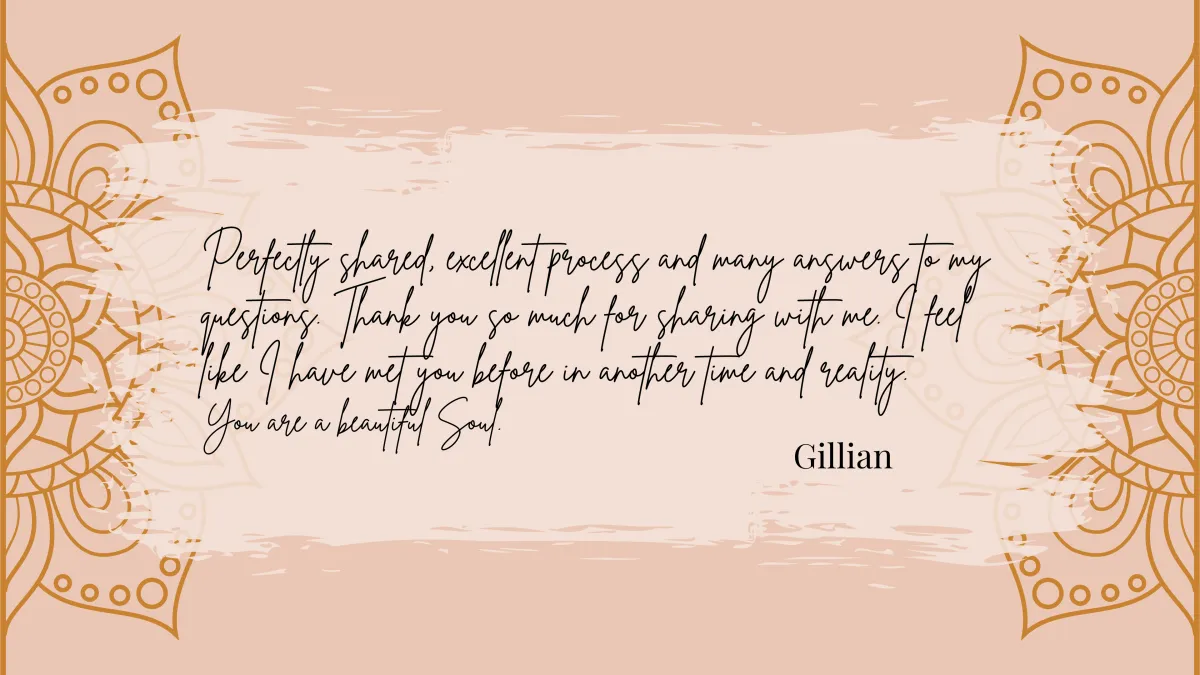 Perfectly shared, excellent process and many answers to my
questions. Thank you so much for sharing with me. I feel
like I have met you before in another time and reality.
You are a beautiful Soul.
Gillian